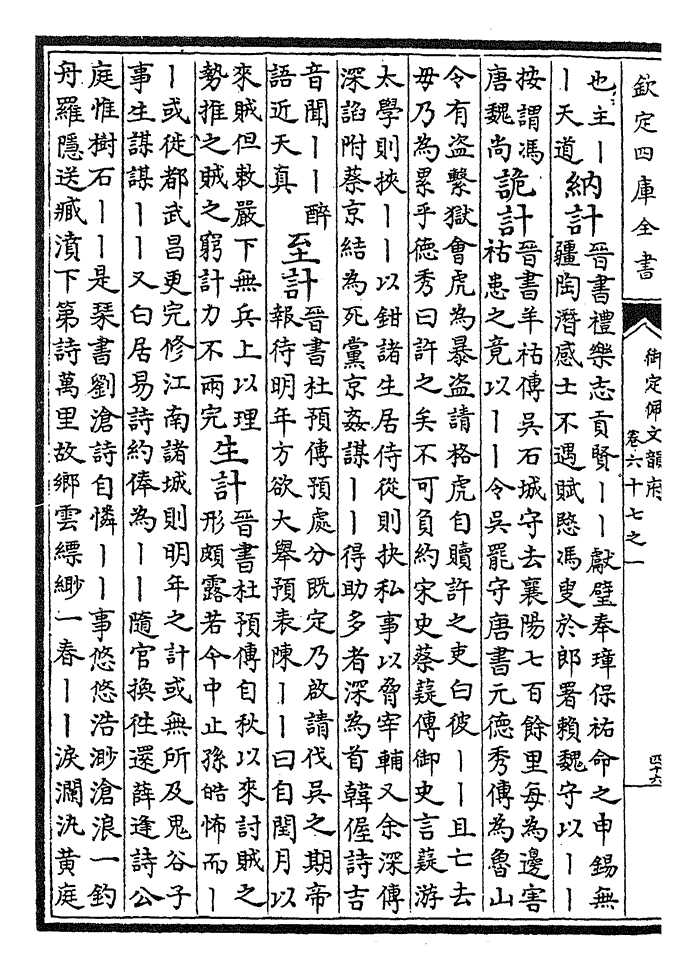 欽定四庫全書
御定佩文韻府
卷六十七之一
四十六
也主丨
丨天道
納計
晉書禮樂志貢賢丨丨獻璧奉璋保祐命之申錫無
疆陶潛感士不遇賦愍馮叟於郎署賴魏守以丨丨
按謂馮
唐魏尚
詭計
晉書羊祜傳吳石城守去襄陽七百餘里每為邊害
祜患之竟以丨丨令吳罷守唐書元德秀傳為魯山
令有盜繫獄會虎為暴盜請格虎自贖許之吏白彼丨丨且亡去
毋乃為累乎德秀曰許之矣不可負約宋史蔡薿傳御史言薿游
太學則挾丨丨以鉗諸生居侍從則抉私事以脅宰輔又余深傳
深諂附蔡京結為死黨京姦謀丨丨得助多者深為首韓偓詩吉
音聞丨丨醉
語近天真
至計
晉書杜預傳預處分既定乃啟請伐吳之期帝
報待明年方欲大舉預表陳丨丨曰自閏月以
來賊但敕嚴下無兵上以理
勢推之賊之窮計力不兩完
生計
晉書杜預傳自秋以來討賊之
形頗露若今中止孫皓怖而丨
丨或徙都武昌更完修江南諸城則明年之計或無所及鬼谷子
事生謀謀丨丨又白居易詩約俸為丨丨隨官換往還薛逢詩公
庭惟樹石丨丨是琴書劉滄詩自憐丨丨事悠悠浩渺滄浪一釣
舟羅隱送臧濆下第詩萬里故鄉雲縹緲一春丨丨淚瀾汍黃庭